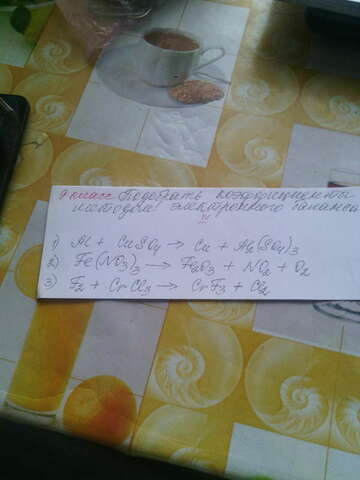 9 класс Подобрать коэффициенты
методом электронного баланса
1) Al + CuSO4 → Cu + Al2(SO4)3
2) Fe(NO3)3 → Fe2O3 + NO2 + O2
3) F2 + CrCl3 → CrF3 + Cl2